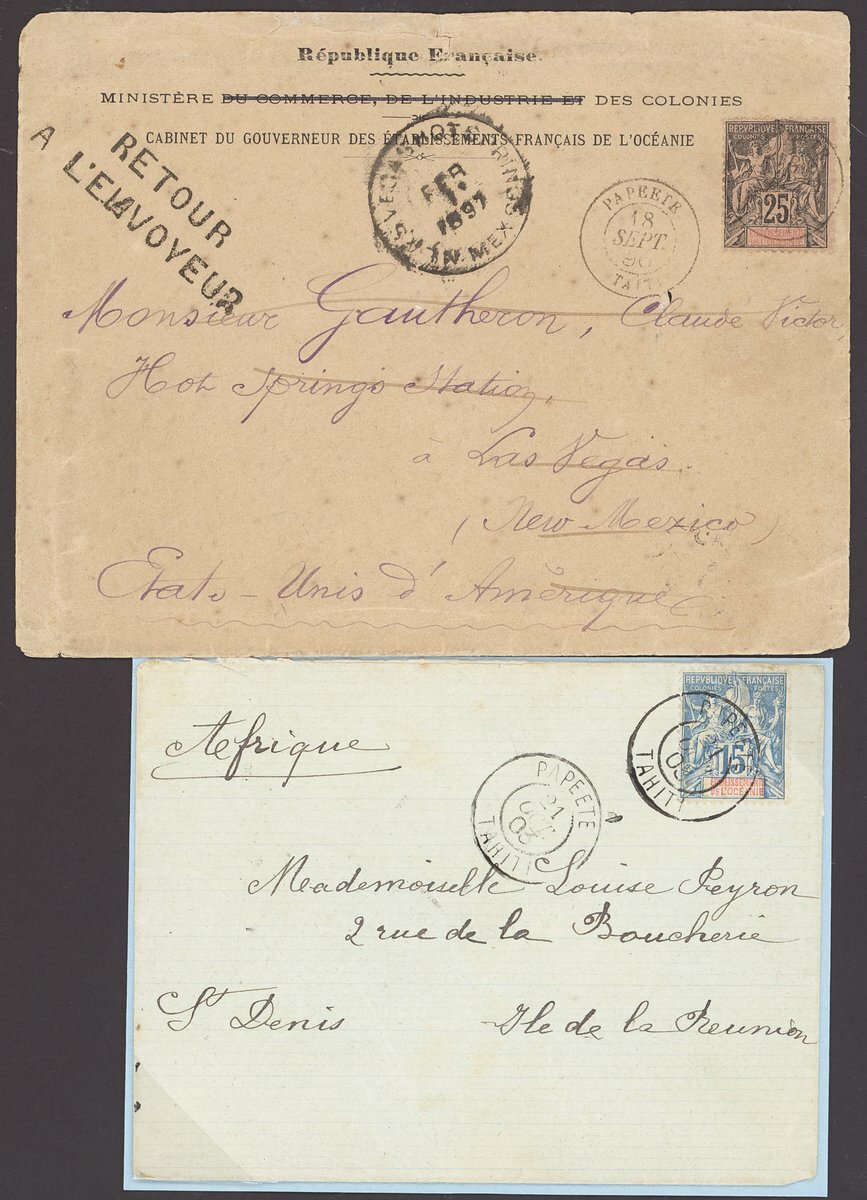 République Française.
MINISTÈRE DU COMMERCE, DE L'INDUSTRIE ET DES COLONIES
CABINET DU GOUVERNEUR DES ÉTABLISSEMENTS FRANÇAIS DE L'OCÉANIE
RETOUR
A L'ENVOYEUR
LAS VEGAS HOT SPRINGS
FEB
1897
N. MEX
PAPEETE
18
SEPT.
TAITI
REPUBLIQUE FRANÇAISE
COLONIES POSTES
25
Monsieur Gautheron, Claude Victor,
Hot Springs Station,
à Las Vegas.
(New Mexico)
États-Unis d'Amérique
REPUBLIQUE FRANÇAISE
COLONIES POSTES
15
ÉTABLISSEMENTS
DE L'OCÉANIE
PAPEETE
TAHITI
PAPEETE
21
OCT
03
TAHITI
Afrique
Mademoiselle Louise Peyron
2 rue de la Boucherie
St Denis Ile de la Reunion